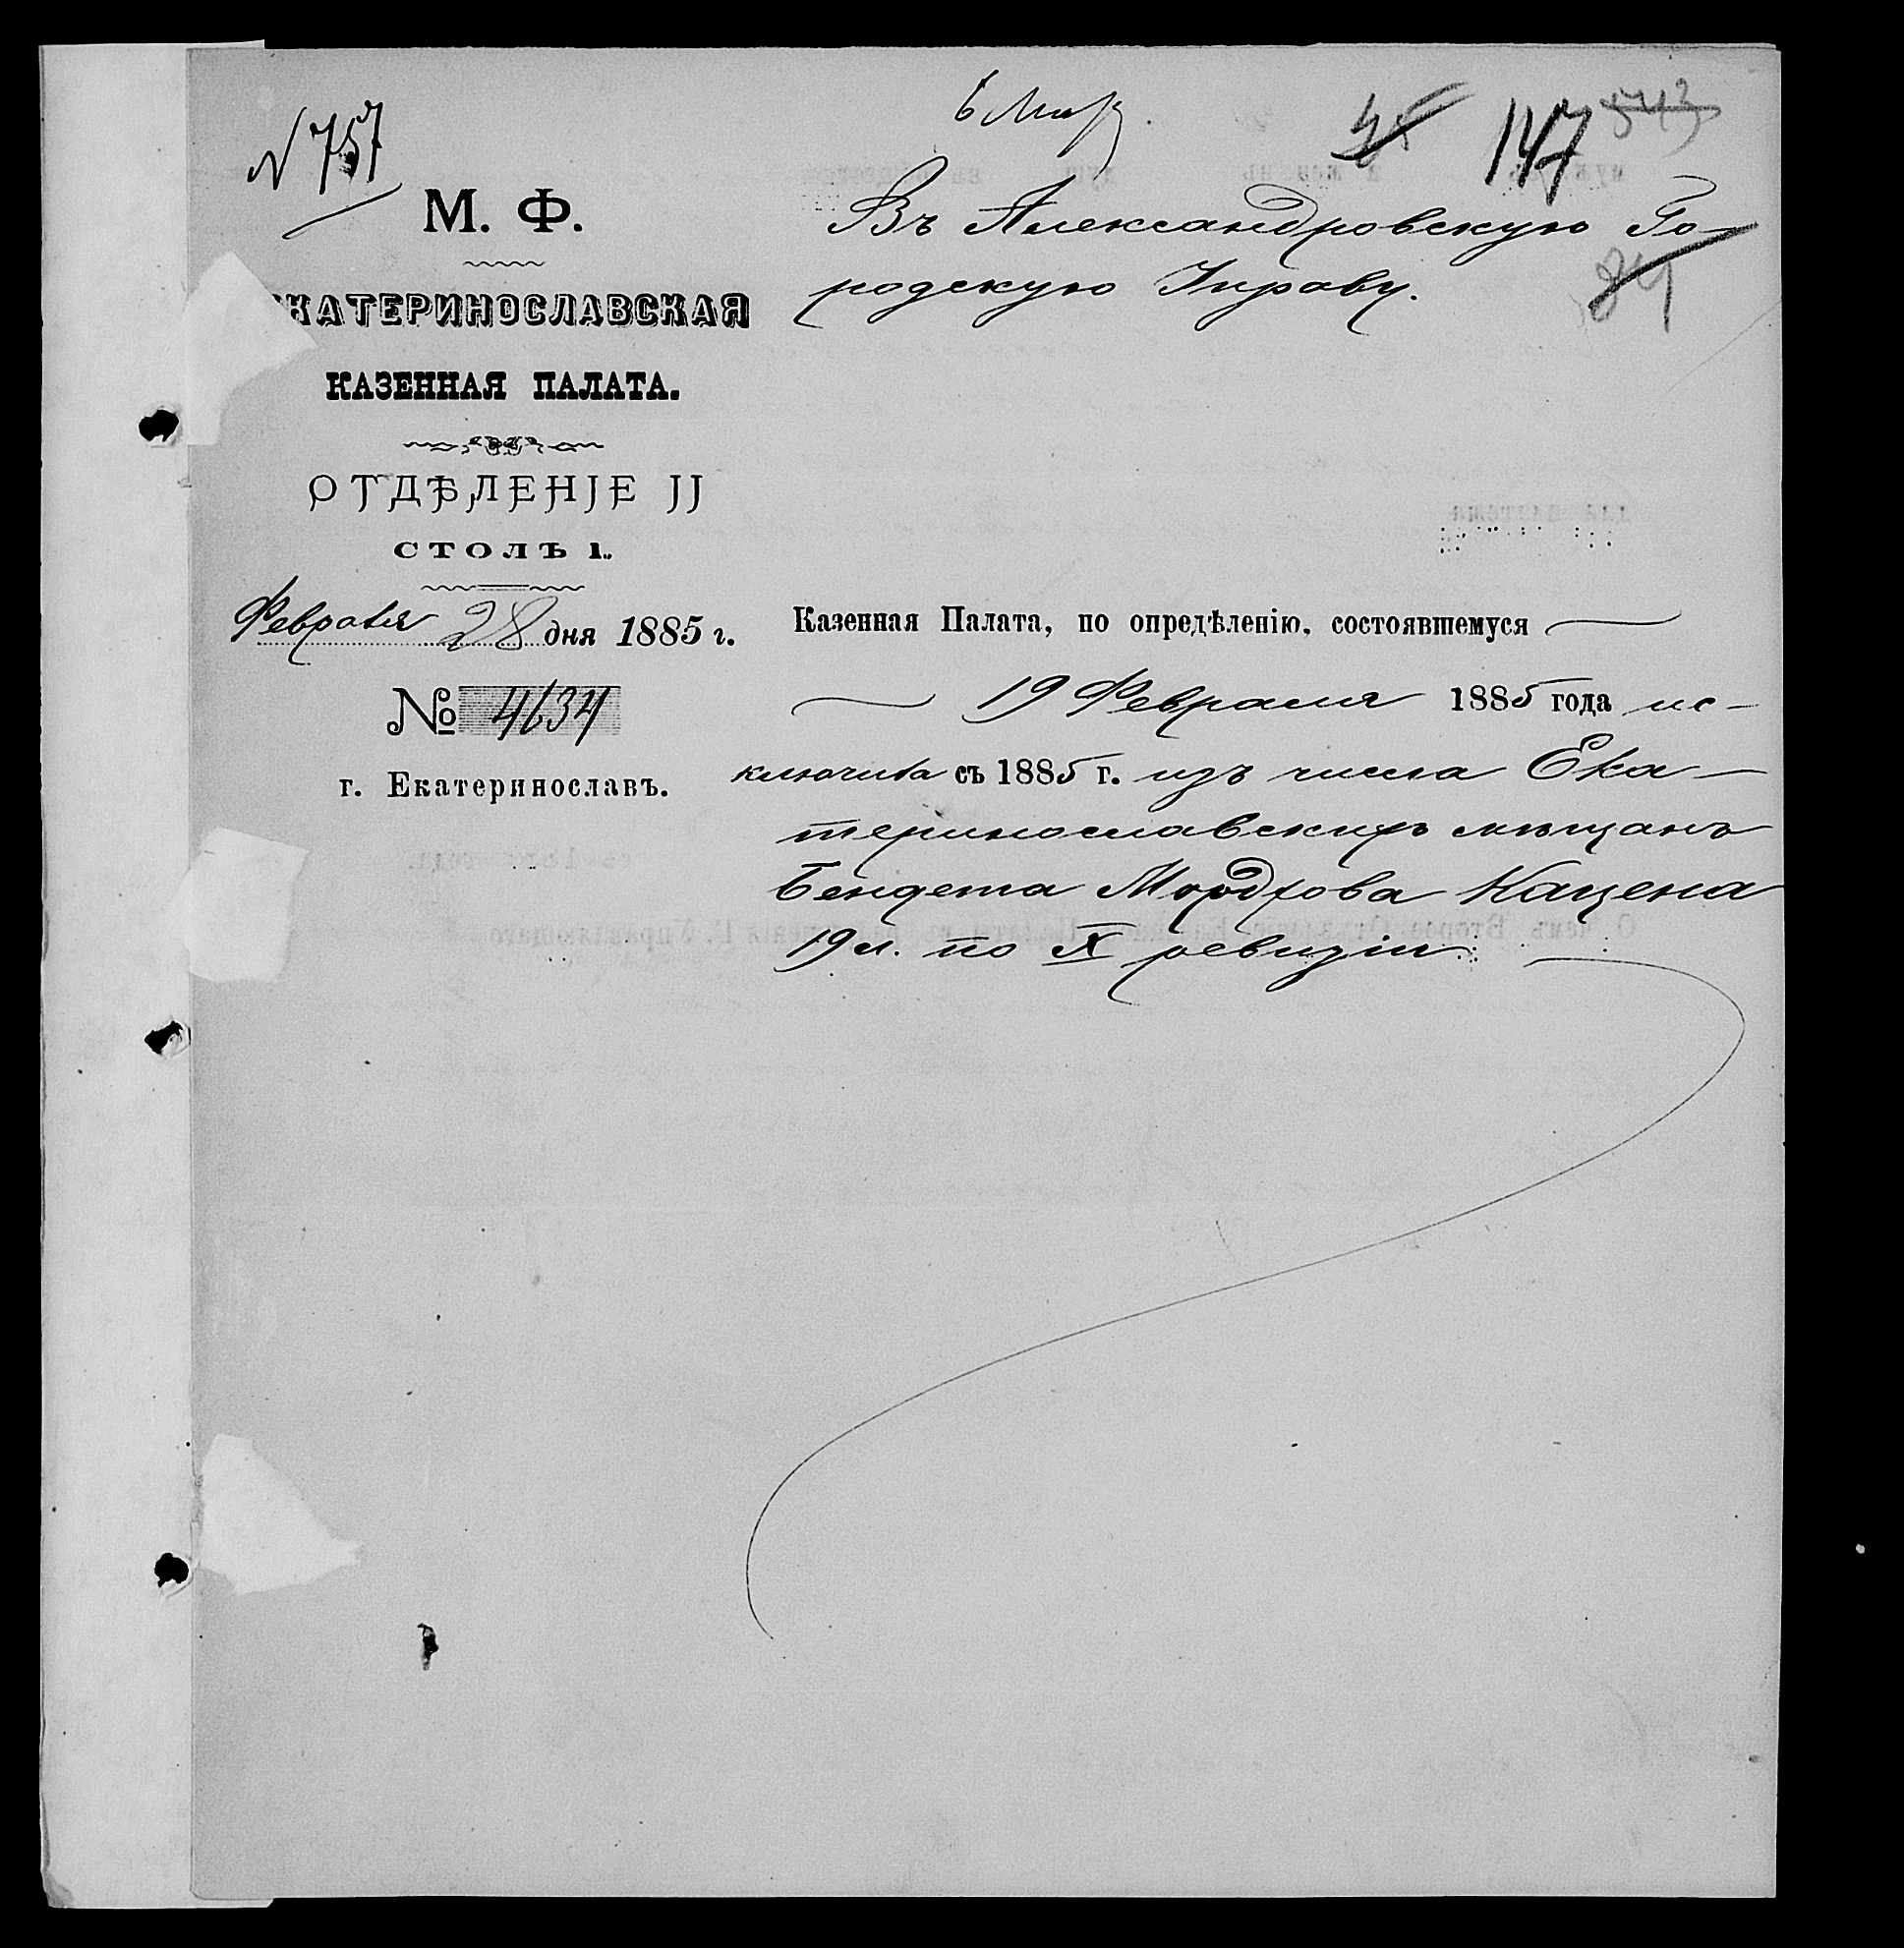 N 757
6 Мар.
147
543
84
М. Ф.
КАТЕРИНОСЛАВСКАЯ
КАЗЕННАЯ ПАЛАТА.
ОТДѢЛЕНІЕ II
СТОЛЪ 1.
Февраля 28 дня 1885 г.
№ 4634
г. Екатеринославъ.
Въ Александровскую Го-
родскую Управу.
Казенная Палата, по опредѣленію, состоявшемуся
19 Февраля 1885 года ис-
ключила съ 1885 г. изъ числа Ека-
теринославскихъ мѣщанъ
Бендета Мордхова Кацена
19 л. по X ревизіи.